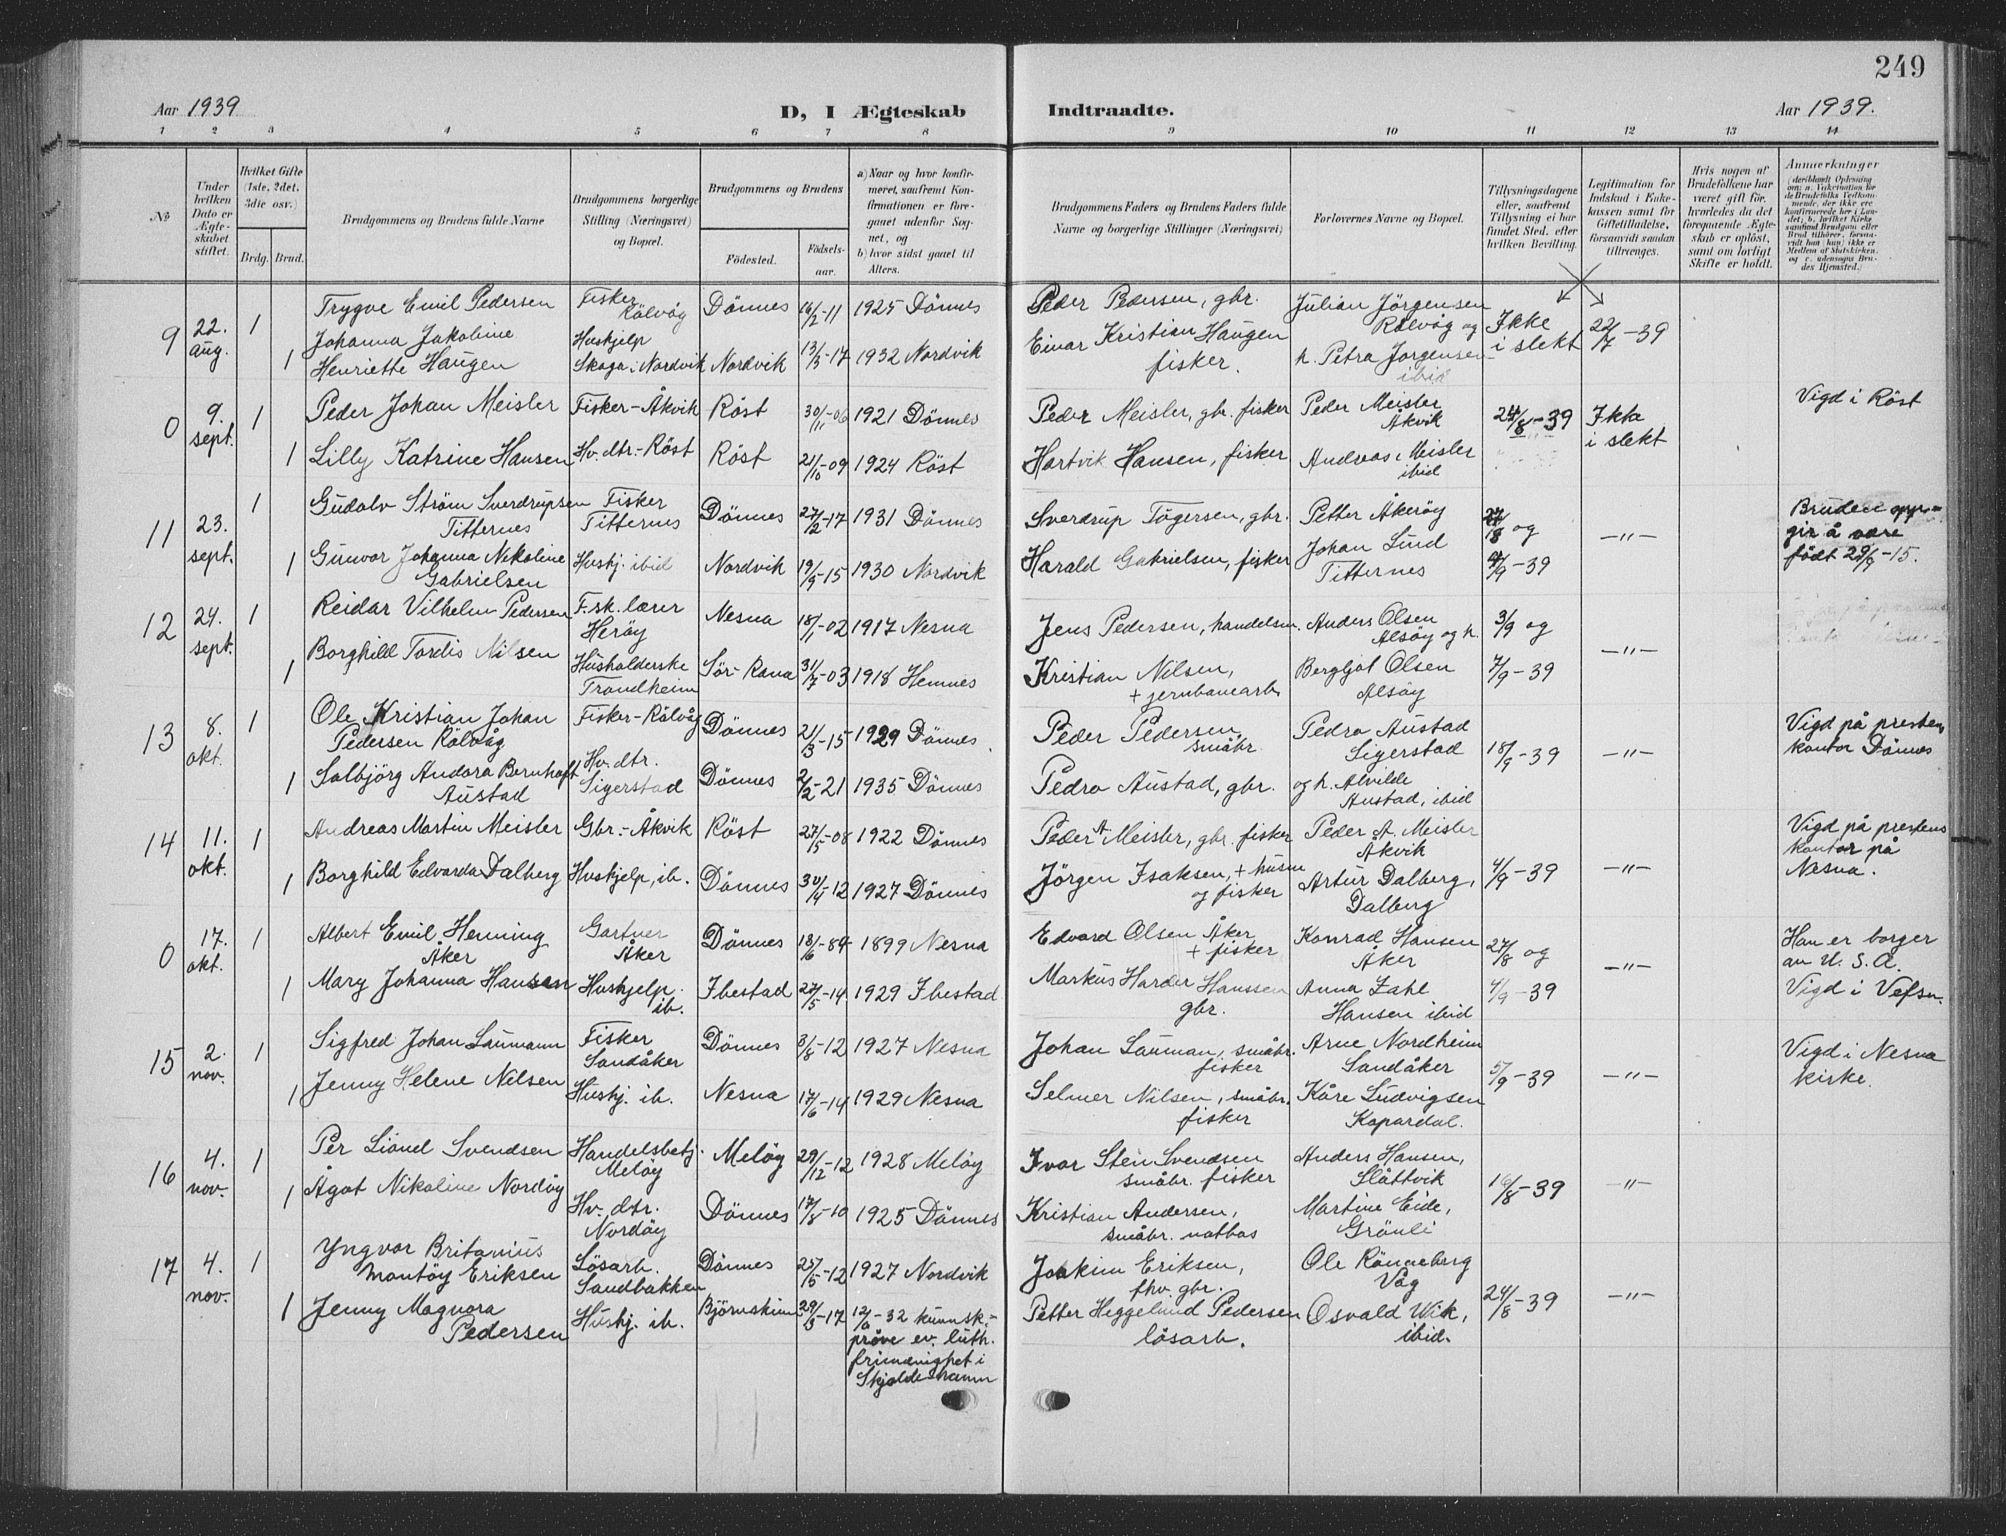 249
Aar 1939
D, I Ægteskab Indtraadte.
Aar 1939.
1 2 3 4 5 6 7 8 9 10 11 12 13 14
№
Under hvilken Dato er Ægte-skabet stiftet.
Hvilket Gifte (1ste, 2det, 3die osv.)
Brdg. Brud.
Brudgommens og Brudens fulde Navne
Brudgommens borgerlige Stilling (Næringsvei) og Bopæl.
Brudgommens og Brudens
Födested.
Födsels-aar.
a) Naar og hvor konfir-meret, saafremt Kon-firmationen er fore-gaaet udenfor Sog-net, og
b) hvor sidst gaaet til Alters.
Brudgommens Faders og Brudens Faders fulde Navne og borgerlige Stillinger (Næringsvei)
Forlovernes Navne og Bopæl.
Tillysningsdagene eller, saafremt Tillysning ei har fundet Sted, efter hvilken Bevilling.
Legitimation for Indskud i Enke-kassen samt for Giftetilladelse, forsaavidt saadan tiltrænges.
Hvis nogen af Brudefolkene har været gift för, hvorledes da det foregaaende Ægte-skab er oplöst, samt om lovligt Skifte er holdt.
Anmærkninger
9 22. aug. 1 Trygve Emil Pedersen Fisker Rölvåg Dönnes 16/2-11 1925 Dönnes Peder Pedersen, gbr. Julian Jörgensen Rölvåg og Ikke i slekt 22/7-39
1 Johanna Jakobine Henriette Haugen Huskjelp Skoga i Nordvik Nordvik 13/3-17 1932 Nordvik Einar Kristian Haugen fisker. h. Petra Jörgensen ibid
0 9. sept. 1 Peder Johan Meisler Fisker-Åkvik Röst 30/11-06 1921 Dönnes Peder Meisler, gbr. fisker Peder Meisler Åkvik 24/8-39 Ikke i slekt Vigd i Röst
1 Lilly Katrine Hansen Hv. dtr.-Röst Röst 21/10-09 1924 Röst Hartvik Hansen, fisker Andreas Meisler ibid
11 23. sept. 1 Gudolv Ström Sverdrupsen Titternes Fisker Titternes Dönnes 27/2-17 1931 Dönnes Sverdrup Togersen, gbr. Petter Åkeröy og -"- Bruden opp-
1 Gunvor Johanna Nikoline Gabrielsen Huskj. ibid Nordvik 19/9-15 1930 Nordvik Harald Gabrielsen, fisker Johan Lund Titternes 4/9-39 gir å være födt 29/9-15.
12 24. sept. 1 Reidar Vilhelm Pedersen F.sk. lærer Heröy Nesna 18/1-02 1917 Nesna Jens Pedersen, handelsm. Anders Olsen Alsöy og h. 3/9 og -"-
1 Borghild Tordis Nilsen Husholderske Trondheim Sör-Rana 31/7-03 1918 Hemnes Kristian Nilsen, + jernbanearb. Bergljot Olsen Alsöy 7/9-39
13 8. okt. 1 Ole Kristian Johan Pedersen Rölvåg Fisker-Rölvåg Dönnes 21/3-15 1929 Dönnes Peder Pedersen, småbr. Pedro Austad Sigerstad 18/9-39 -"- Vigd på presten. kontor Dönnes
1 Solbjörg Andora Bernhoft Austad Hv. dtr. Sigerstad Dönnes 2/2-21 1935 Dönnes Pedro Austad, gbr. og h. Alvilde Austad, ibid
14 11. okt. 1 Andreas Martin Meisler Gbr.-Åkvik Röst 27/5-08 1922 Dönnes Peder A. Meisler, gbr. fisker Peder A. Meisler Åkvik 4/9-39 -"- Vigd på prestens kontor på Nesna.
1 Borghild Edvarda Dalberg Huskjelp, ib. Dönnes 30/4-12 1927 Dönnes Jörgen Isaksen, + husm og fisker Artur Dalberg, Dalberg
0 17. okt. 1 Albert Emil Henning Åker Gartner Åker Dönnes 18/6-84 1899 Nesna Edvard Olsen Åker + fisker Konrad Hansen Åker 27/8 og -"- Han er borger av U.S.A.
1 Mary Johanna Hansen Huskjelp ib. Ibestad 27/5-14 1929 Ibestad Markus Harder Hanssen gbr. Anna Zahl Hansen ibid 4/9-39 Vigd i Vefsn.
15 2. nov. 1 Sigfred Johan Laumann Fisker Sandåker Dönnes 3/8-12 1927 Nesna Johan Lauman, småbr. fisker Arne Nordheim Sandåker 5/9-39 -"- Vigd i Nesna kirke.
1 Jenny Helene Nilsen Huskj. ib. Nesna 17/6-14 1929 Nesna Selmer Nilsen, småbr. fisker Kåre Ludvigsen Kopardal.
16 4. nov. 1 Per Lionel Svendsen Handelsbetj. Melöy Melöy 29/12-12 1928 Melöy Ivar Sten Svendsen småbr. fisker Anders Hansen, Slåttvik 16/8-39 -"-
1 Ågot Nikoline Nordöy Hv. dtr. Nordöy Dönnes 17/8-10 1925 Dönnes Kristian Andersen, småbr. notbas Martine Eide, Grönli
17 4. nov. 1 Yngvar Britanius Montöy Eriksen Lösarb. Sandbakken Dönnes 25/5-12 1927 Nordvik Joakim Eriksen, fhv. gbr. Ole Rönneberg Våg 24/8-39 -"-
1 Jenny Magnora Pedersen Huskj. ib. Björnskinn 29/3-17 12/6-32 kunnsk.-pröve ev. luth. frimenighet i Skjoldehamn Petter Heggelund Pedersen lösarb. Osvald Wik, ibid.